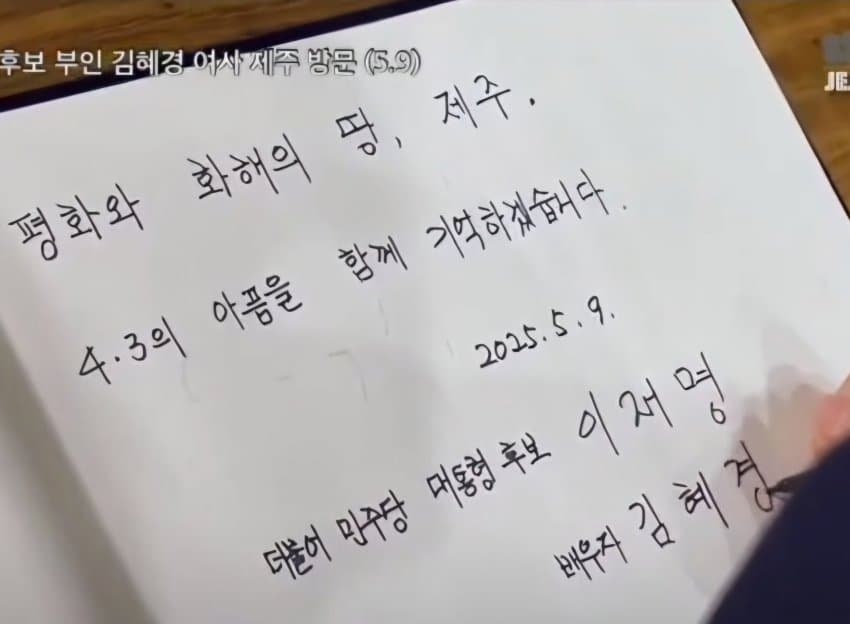 후보 부인 김혜경 여사 제주 방문 (5.9)
평화와 화해의 땅, 제주.
4.3의 아픔을 함께 기억하겠습니다.
2025.5.9.
더불어 민주당 대통형 후보 이재명
배우자 김혜경